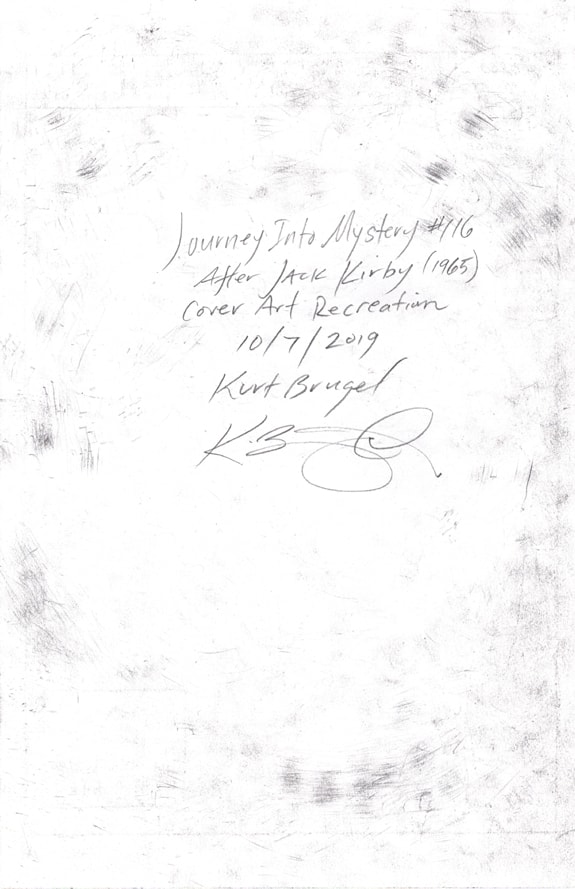 Journey Into Mystery #116
After Jack Kirby (1965)
Cover Art Recreation
10/7/2019
Kurt Brugel
K.B